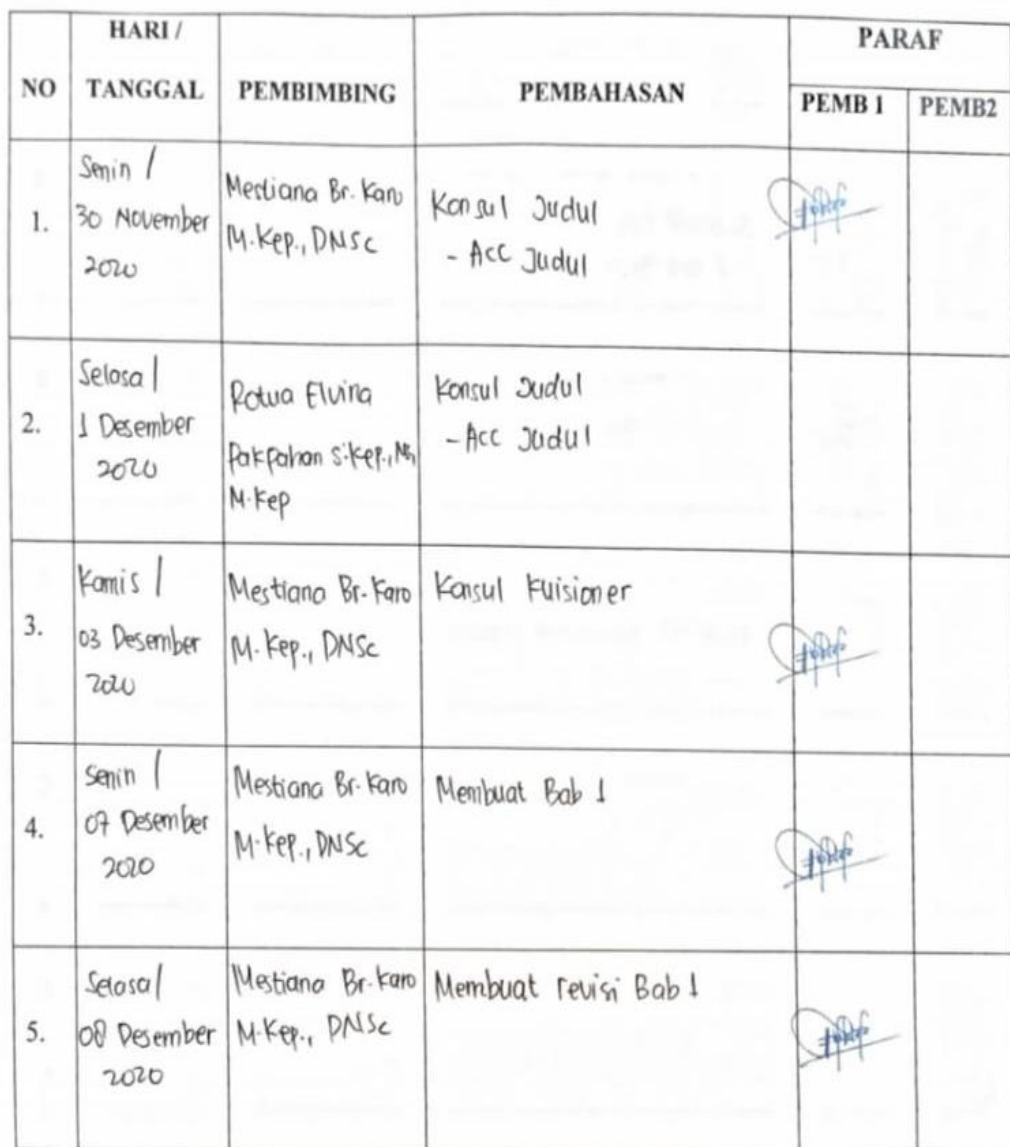 NO
HARI /
TANGGAL
PEMBIMBING
PEMBAHASAN
PARAF
PEMB 1
PEMB2
1.
Senin /
30 November
2020
Mestiana Br. Karo
M.Kep., DNSc
Konsul Judul
- Acc Judul
2.
Selasa /
1 Desember
2020
Rotua Elvina
Pakpahan S.Kep., Ns,
M.Kep
Konsul Judul
- Acc Judul
3.
Kamis /
03 Desember
2020
Mestiana Br. Karo
M. Kep., DNSc
Konsul Kuisioner
4.
Senin /
07 Desember
2020
Mestiana Br. Karo
M.Kep., DNSc
Membuat Bab 1
5.
Selasa /
08 Desember
2020
Mestiana Br. Karo
M.Kep., DNSc
Membuat revisi Bab 1